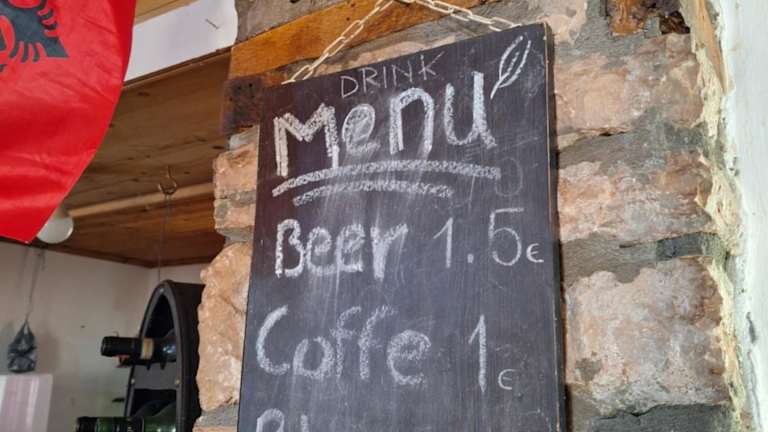 DRINK
Menu
Beer 1.5€
Coffe 1€